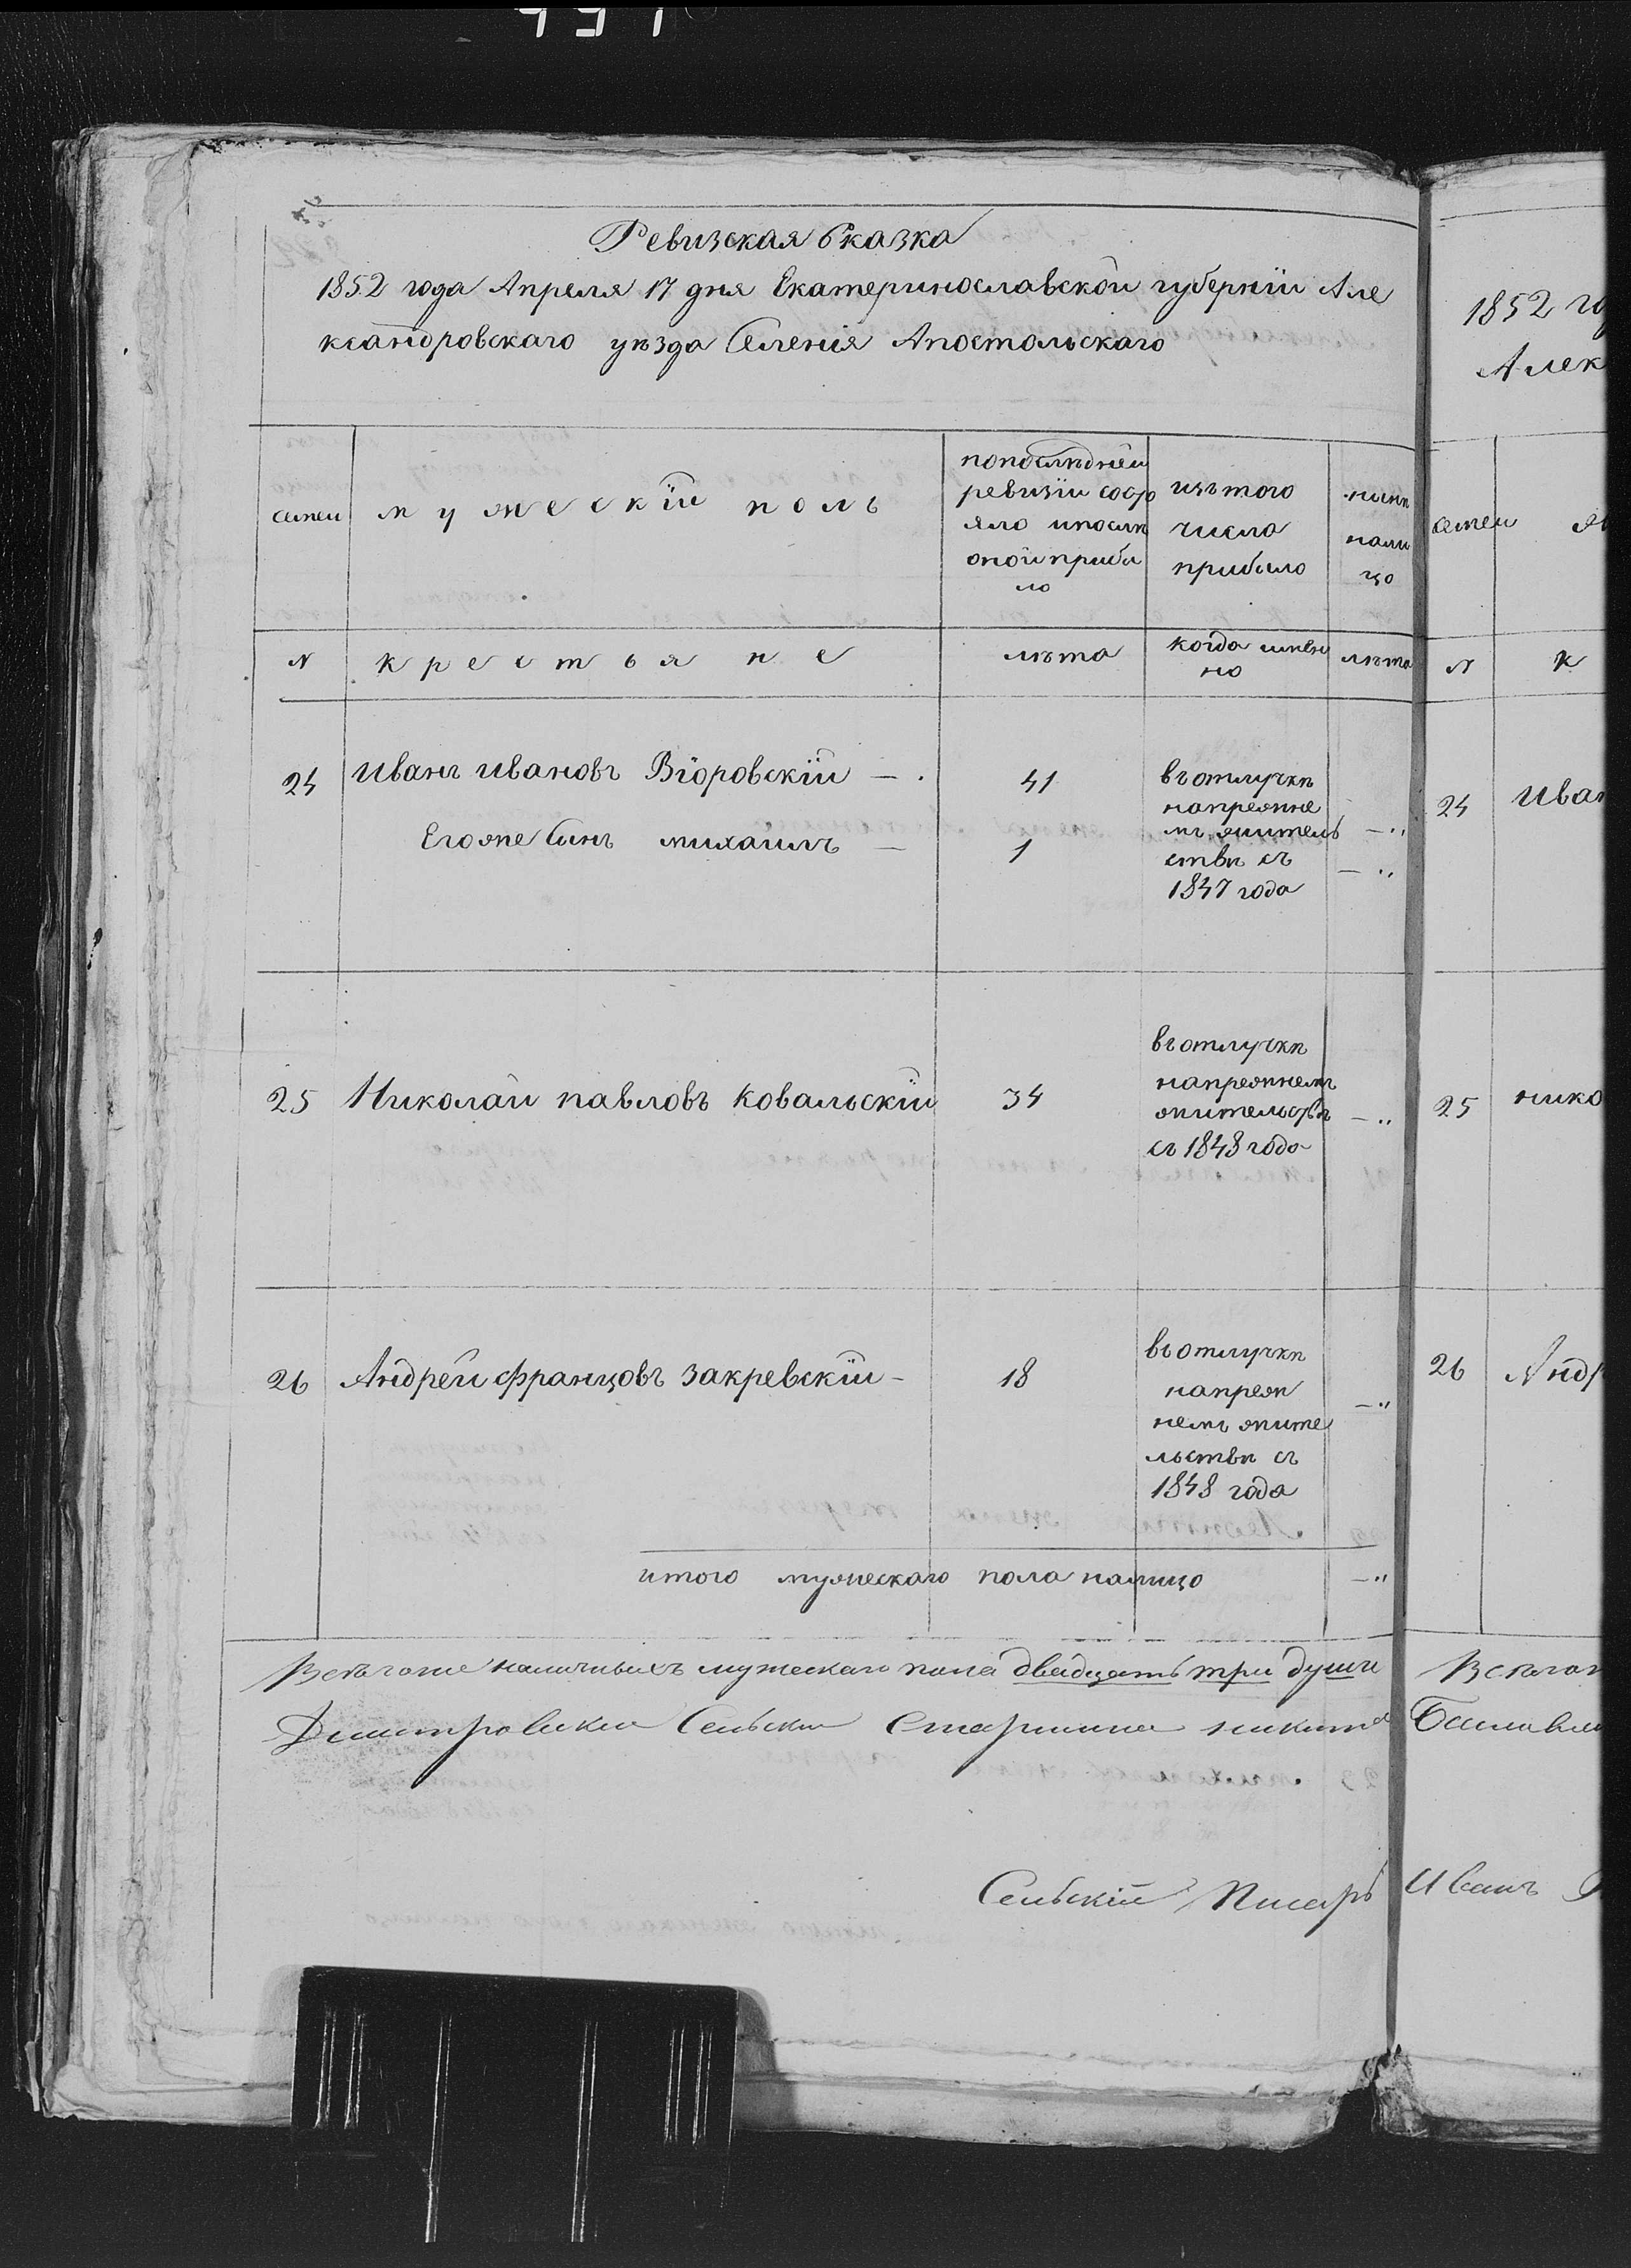 Ревизская Сказка
1852 года Апреля 17 дня Екатеринославской губернїи Але
ксандровскаго уѣзда Селенія Апостольскаго
семеи
мужескїй полъ
попослѣднѣй
ревизїи состо
яло ипослѣ
оной прибы
ло
изътого
числа
прибыло
нынѣ
нали
цо
N
крестьяне
лѣта
когда имен
но
лѣта
24
Иванъ Ивановъ Вїоровскїй — .
41
въотлучкѣ
напрежне
мъ житель
ствѣ съ
1847 года
— "
Егоже Сынъ михаилъ —
1
— "
25
Николай павловъ Ковальскїй
34
въотлучкѣ
напрежнемъ
жительствѣ
съ 1848 года
— "
26
Андрей Францовъ Закревскїй —
18
въотлучкѣ
напреж
немъ жите
льствѣ съ
1848 года
— "
итого мужескаго пола налицо
— "
Всегоже наличныхъ мужескаго пола двадцать три души
Димитровский Сельский Старшина никита
Сельскій Писарь
1852 го
Алек
семеи
N
К
24
Иван
25
нико
26
Андр
Всегож
Иванъ